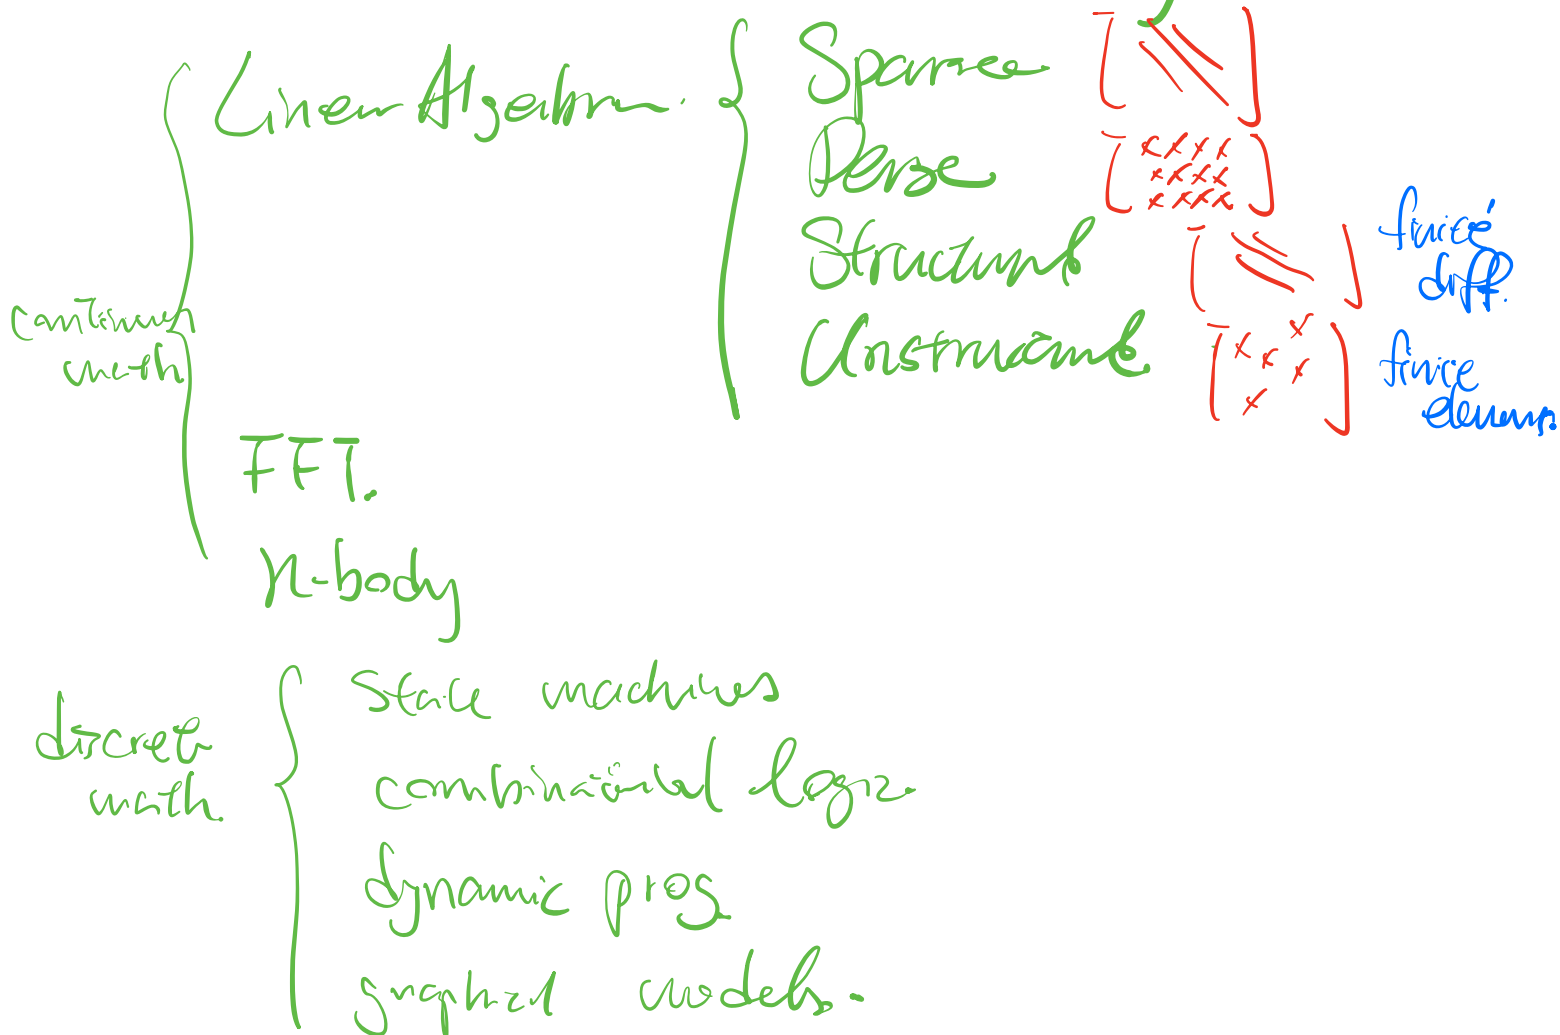 Linear Algebra.
Sparse
Dense
Structured
Unstructured
finite
diff.
finite
elem.
continuous
math
FFT.
N-body
discrete
math.
State machines
combinational logic.
dynamic prog
graphical models.